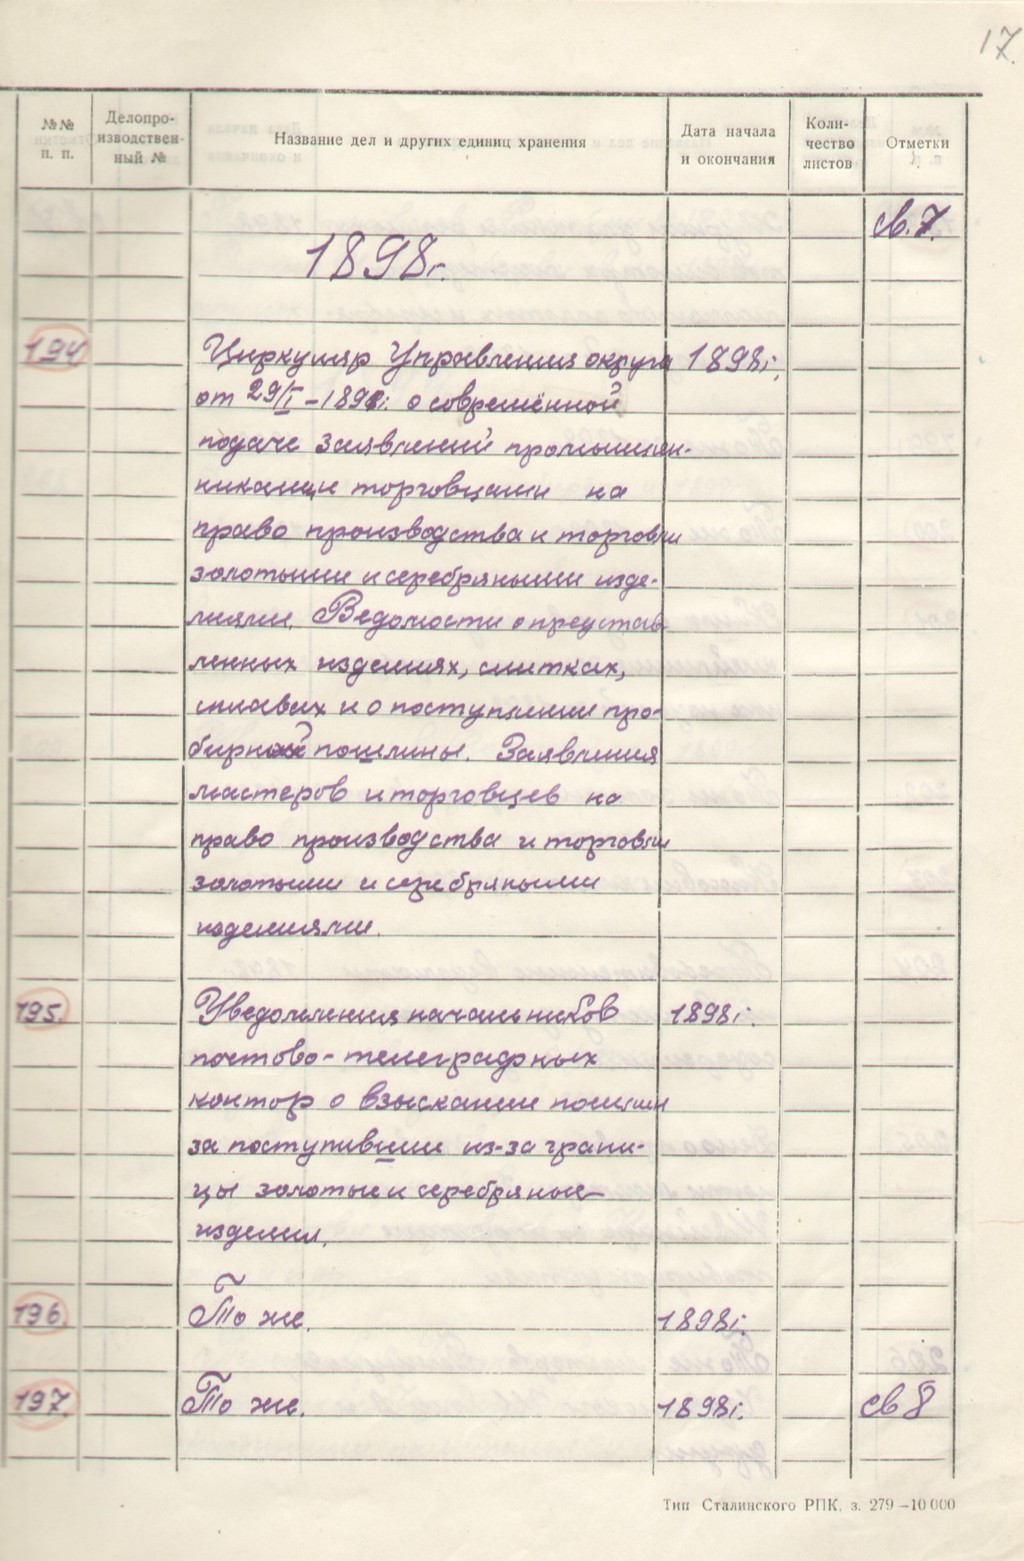 17.
№№ п. п.
Делопро-
изводствен-
ный №
Название дел и других единиц хранения
Дата начала
и окончания
Коли-
чество
листов
Отметки
св. 7.
1898г.
194 Циркуляр Управления округа 1898г.
от 29/I – 1898г. о современной
подаче заявлений промышлен-
никами торговцами на
право производства и торговли
золотыми и серебряными изде-
лиями. Ведомости о представ
ленных изделиях, слитках,
сплавах и о поступлении про-
бирной пошлины. Заявления
мастеров и торговцев на
право производства и торговли
золотыми и серебряными
изделиями.
195. Уведомления начальников 1898г.
почтово-телеграфных
контор о взыскании пошлин
за поступившие из-за грани-
цы золотые и серебряные
изделия.
196. То же. 1898г.
197. То же. 1898г. св 8
Тип Сталинского РПК, з. 279 – 10 000